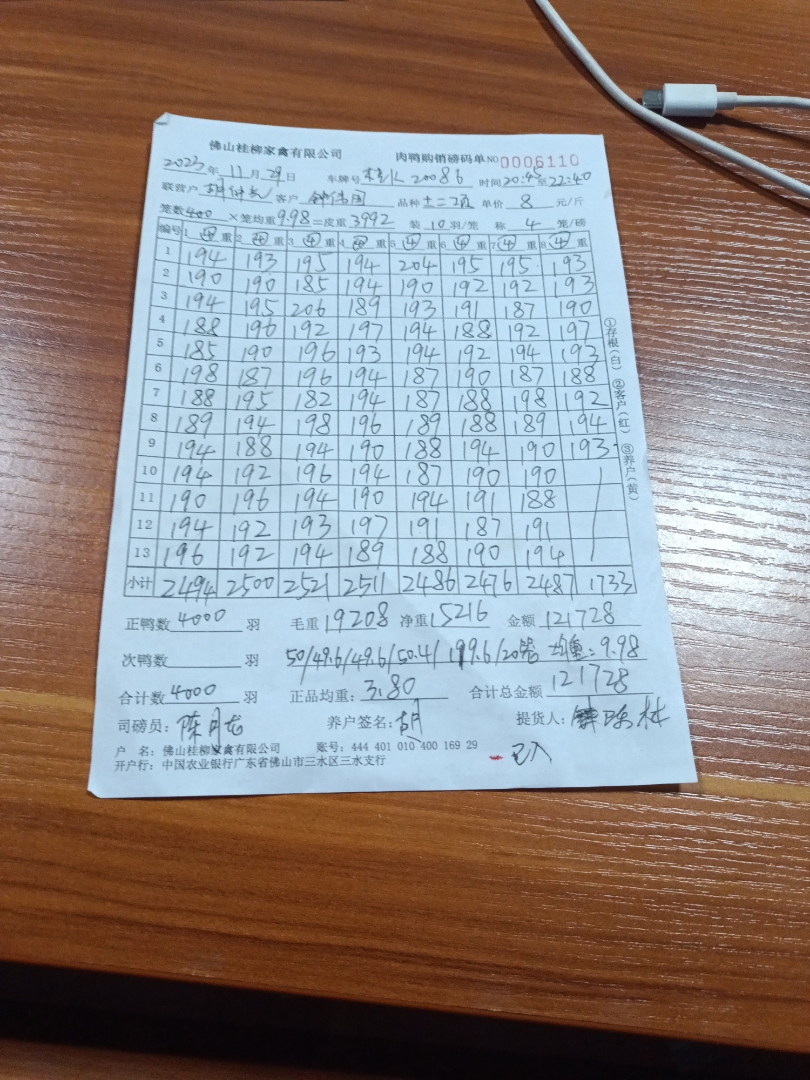 佛山桂柳家禽有限公司 肉鸭购销磅码单 NO 0006110
2023年 11月 29日 车牌号 20086 时间 20:45至22:40
联营户 客户 钟伟国 品种 十二项 单价 8 元/斤
笼数 400 ×笼均重 9.98 =皮重 3992 装 10 羽/笼 称 4 笼/磅
编号 1 ④ 重 2 ④ 重 3 ④ 重 4 ④ 重 5 ④ 重 6 ④ 重 7 ④ 重 8 ④ 重
1 194 193 195 194 204 195 195 193
2 190 190 185 194 190 192 192 193
3 194 195 206 189 193 191 187 190
4 188 196 192 197 194 188 192 197
5 185 190 196 193 194 192 194 193
6 198 187 196 194 187 190 187 188
7 188 195 182 194 187 188 198 192
8 189 194 198 196 189 188 189 194
9 194 188 194 190 188 194 190 193
10 194 192 196 194 187 190 190
11 190 196 194 190 194 191 188
12 194 192 193 197 191 187 191
13 196 192 194 189 188 190 194
小计 2494 2500 2521 2511 2486 2476 2487 1733
①存根(白) ②客户(红) ③养户(黄)
正鸭数 4000 羽 毛重 19208 净重 15216 金额 121728
次鸭数 羽 50/49.6/49.6/50.4/ 199.6/20笼 均重:9.98
合计数 4000 羽 正品均重: 3.80 合计总金额 121728
司磅员: 陈月龙 养户签名: 胡 提货人:
户 名: 佛山桂柳家禽有限公司 账号: 444 401 010 400 169 29
开户行: 中国农业银行广东省佛山市三水区三水支行 已入